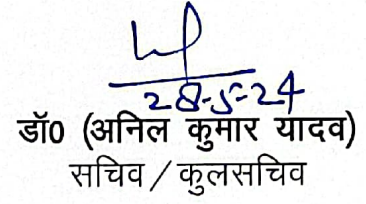 28-5-24
डॉ0 (अनिल कुमार यादव)
सचिव / कुलसचिव